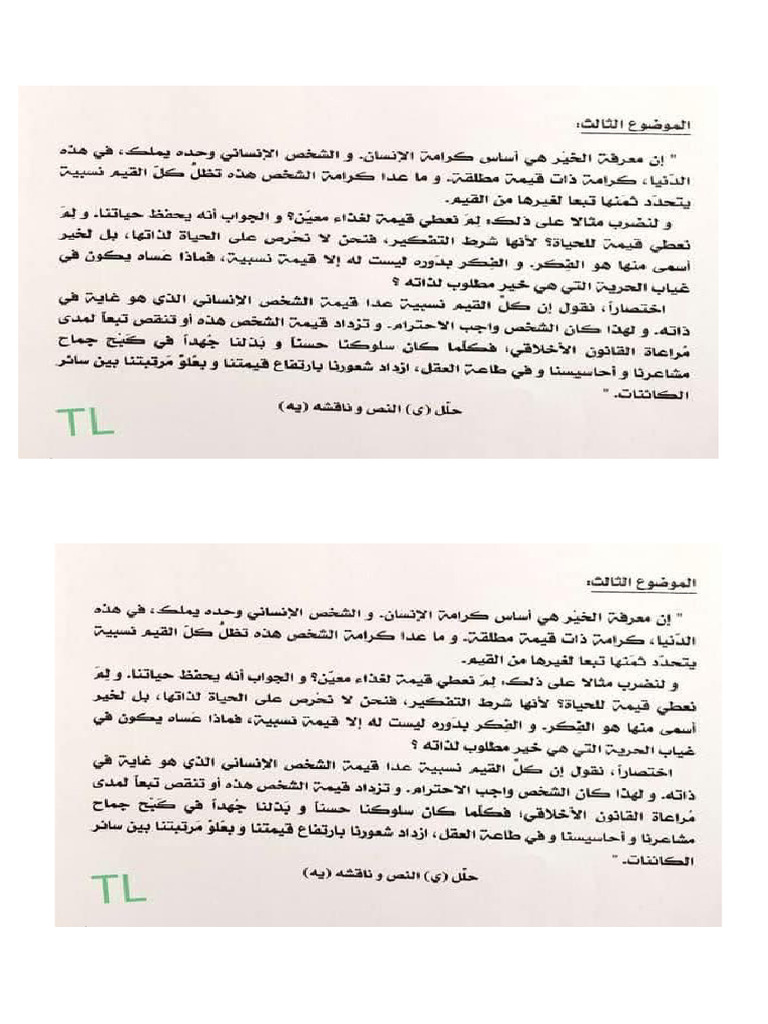 الموضوع الثالث:
" إن معرفة الخيْر هي أساس كرامة الإنسان. و الشخص الإنساني وحده يملك، في هذه
الدّنيا، كرامة ذات قيمة مطلقة. و ما عدا كرامة الشخص هذه تظلّ كلّ القيم نسبية
يتحدّد ثمَنها تبعا لغيرها من القيم.
و لنضرب مثالا على ذلك: لِمَ نعطي قيمة لغذاء معيّن؟ و الجواب أنه يحفظ حياتنا. و لِمَ
نعطي قيمة للحياة؟ لأنها شرط التفكير، فنحن لا نحْرص على الحياة لذاتها، بل لخير
أسمى منها هو الفِكر. و الفِكر بدَوره ليست له إلا قيمة نسبية، فماذا عَساه يكون في
غياب الحرية التي هي خير مطلوب لذاته ؟
اختصاراً، نقول إن كلّ القيم نسبية عدا قيمة الشخص الإنساني الذي هو غاية في
ذاته. و لهذا كان الشخص واجب الاحترام. و تزداد قيمة الشخص هذه أو تنقص تبعاً لمدى
مُراعاة القانون الأخلاقي؛ فكلّما كان سلوكنا حسناً و بَذلنا جُهداً في كَبْح جماح
مشاعرنا و أحاسيسنا و في طاعة العقل، ازداد شعورنا بارتفاع قيمتنا و بعُلوّ مَرتبتنا بين سائر
الكائنات. "
حلّل (ي) النص و ناقشه (يه)
TL
الموضوع الثالث:
" إن معرفة الخيْر هي أساس كرامة الإنسان. و الشخص الإنساني وحده يملك، في هذه
الدّنيا، كرامة ذات قيمة مطلقة. و ما عدا كرامة الشخص هذه تظلّ كلّ القيم نسبية
يتحدّد ثمَنها تبعا لغيرها من القيم.
و لنضرب مثالا على ذلك: لِمَ نعطي قيمة لغذاء معيّن؟ و الجواب أنه يحفظ حياتنا. و لِمَ
نعطي قيمة للحياة؟ لأنها شرط التفكير، فنحن لا نحْرص على الحياة لذاتها، بل لخير
أسمى منها هو الفِكر. و الفِكر بدَوره ليست له إلا قيمة نسبية، فماذا عَساه يكون في
غياب الحرية التي هي خير مطلوب لذاته ؟
اختصاراً، نقول إن كلّ القيم نسبية عدا قيمة الشخص الإنساني الذي هو غاية في
ذاته. و لهذا كان الشخص واجب الاحترام. و تزداد قيمة الشخص هذه أو تنقص تبعاً لمدى
مُراعاة القانون الأخلاقي؛ فكلّما كان سلوكنا حسناً و بَذلنا جُهداً في كَبْح جماح
مشاعرنا و أحاسيسنا و في طاعة العقل، ازداد شعورنا بارتفاع قيمتنا و بعُلوّ مَرتبتنا بين سائر
الكائنات. "
حلّل (ي) النص و ناقشه (يه)
TL